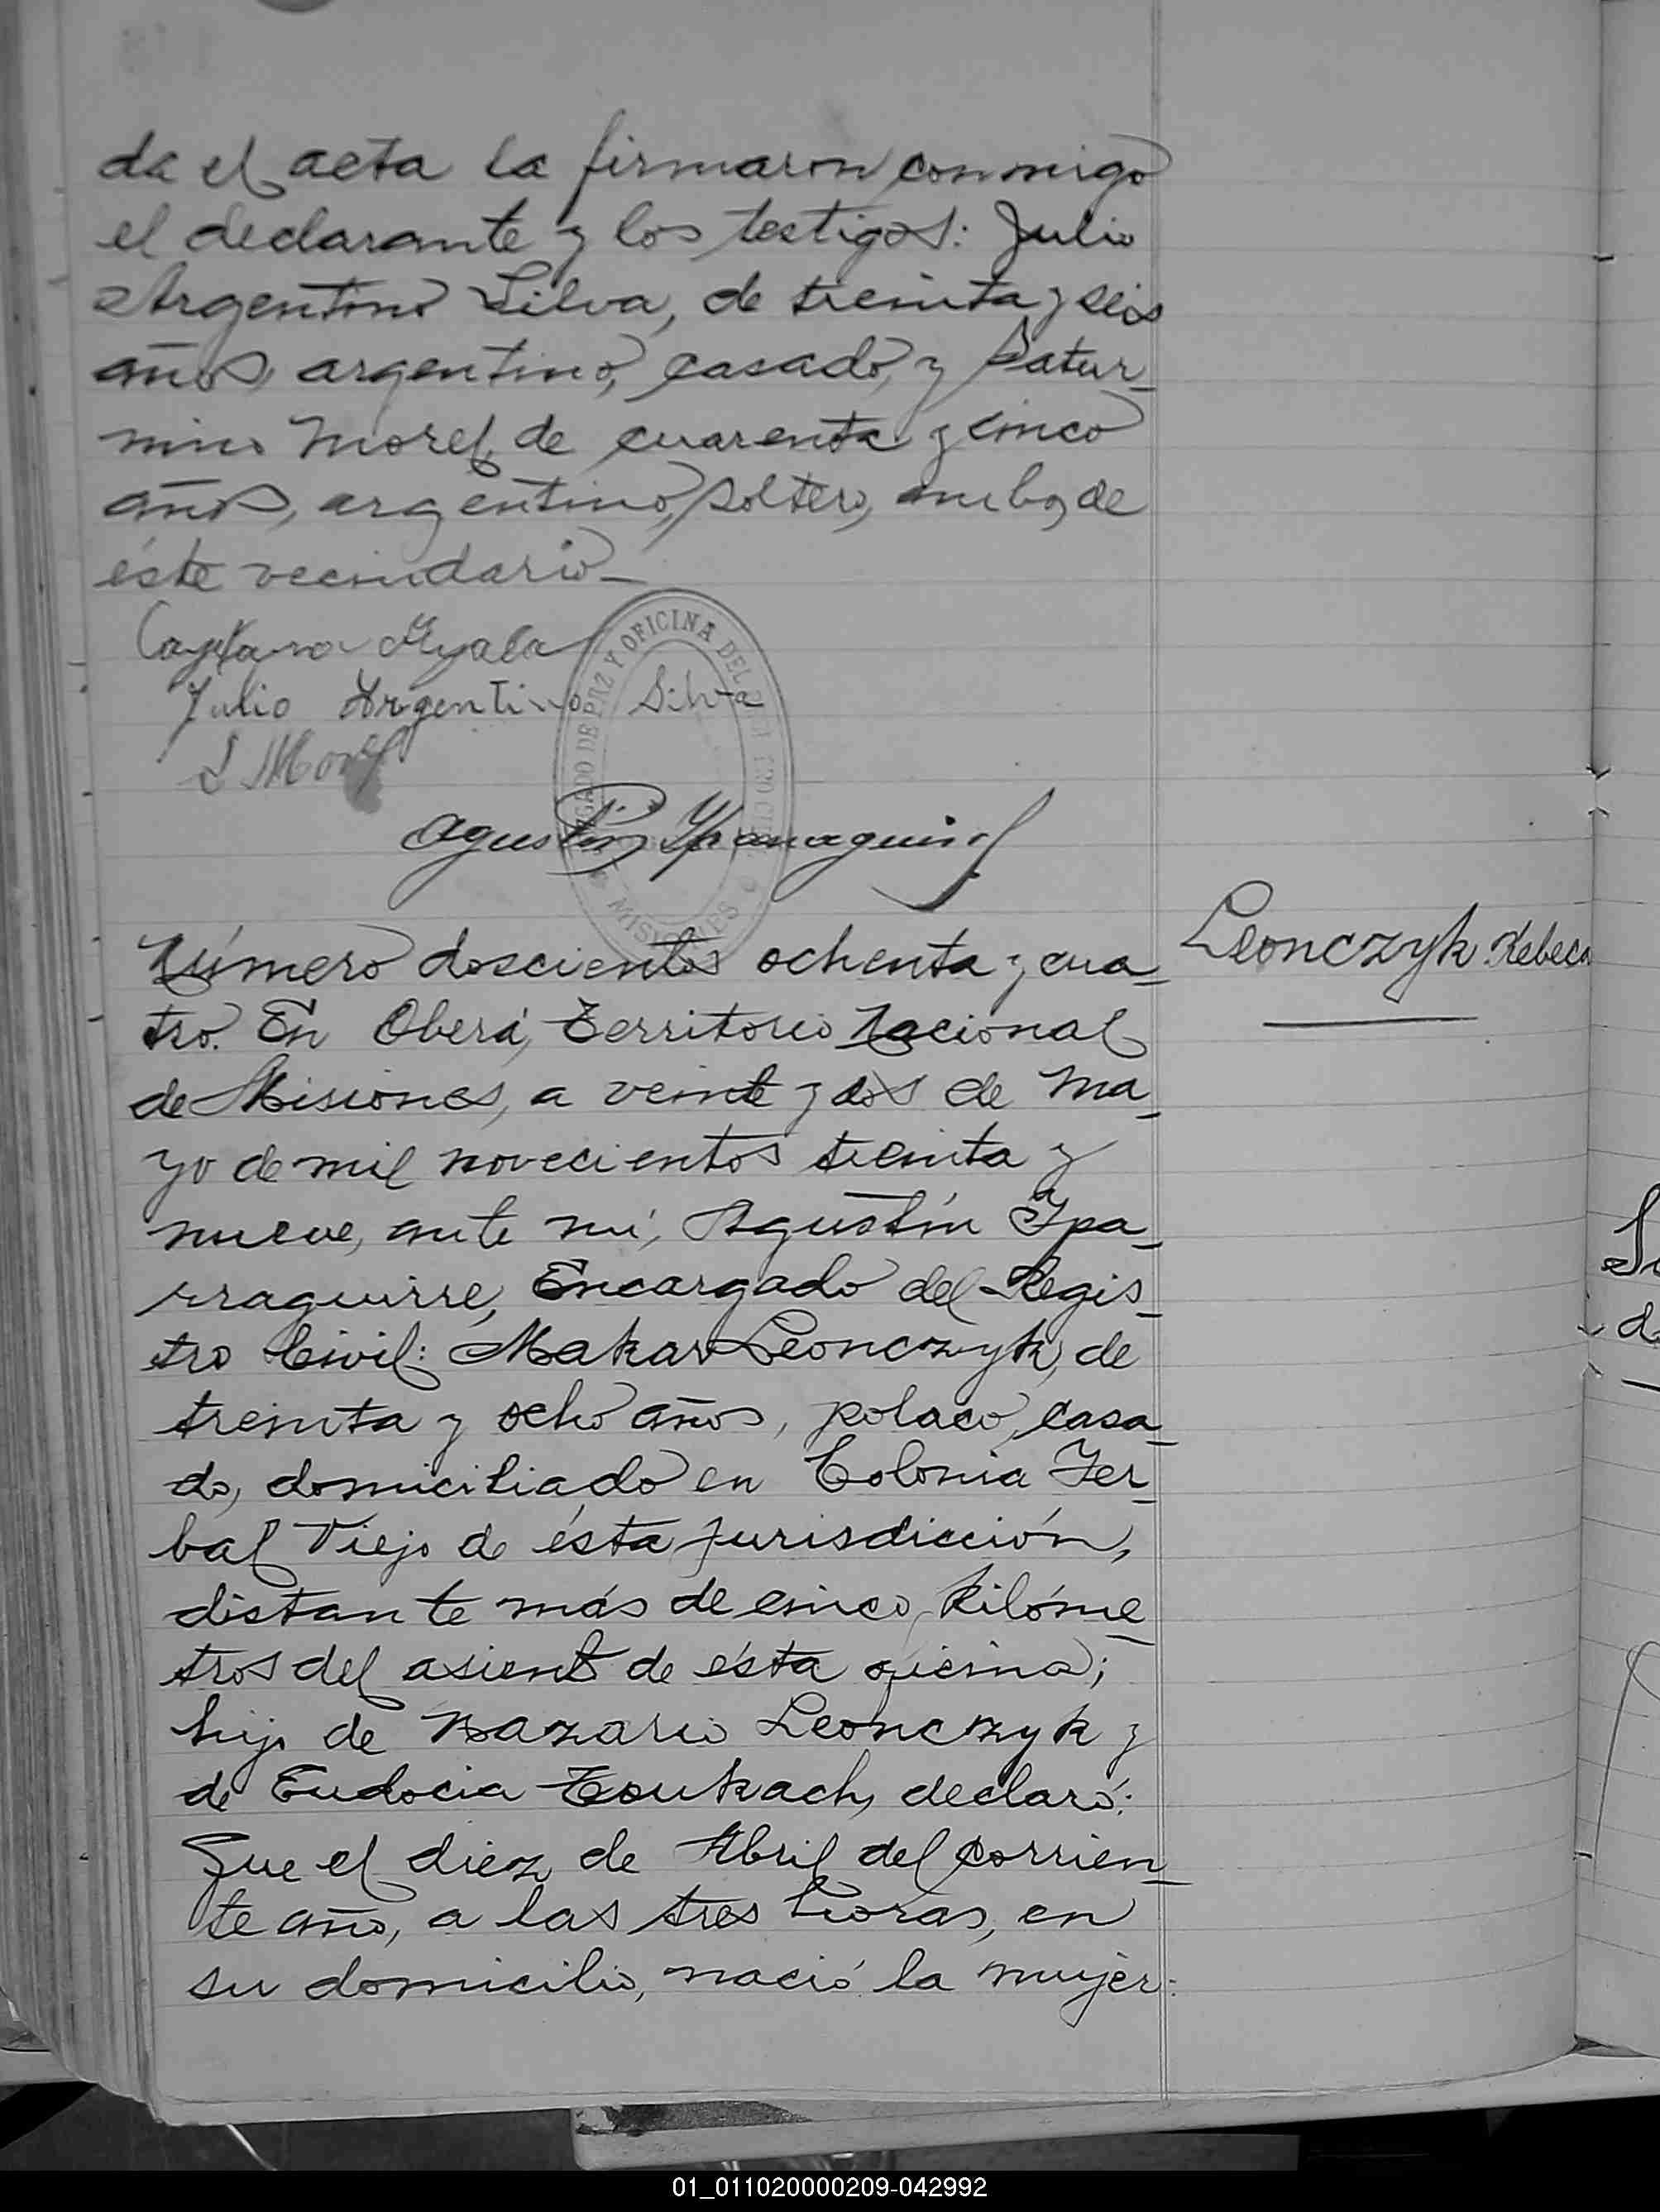 da el acta la firmaron conmigo
el declarante y los testigos: Julio
Argentino Silva, de treinta y seis
años, argentino, casado, y Satur-
nino Morel, de cuarenta y cinco
años, argentino, soltero, ambos de
éste vecindario-
Cayetano Ayala
Julio Argentino Silva
S Morel
JUZGADO DE PAZ Y OFICINA DEL REGISTRO CIVIL
MISIONES
Agustín Yparraguirre
Número doscientos ochenta y cua-
tro. En Oberá, Territorio Nacional
de Misiones, a veinte y dos de Ma-
yo de mil novecientos treinta y
nueve, ante mí, Agustín Ypa-
rraguirre, Encargado del Regis-
tro Civil: Makar Leonczyk, de
treinta y ocho años, polaco, casa-
do, domiciliado en Colonia Yer-
bal Viejo de ésta jurisdicción,
distante más de cinco kilóme-
tros del asiento de ésta oficina;
hijo de Nazario Leonczyk y
de Eudocia Tsukach, declaró:
Que el diez de Abril del corrien-
te año, a las tres horas, en
su domicilio, nació la mujer:
Leonczyk Rebeca
01_011020000209-042992